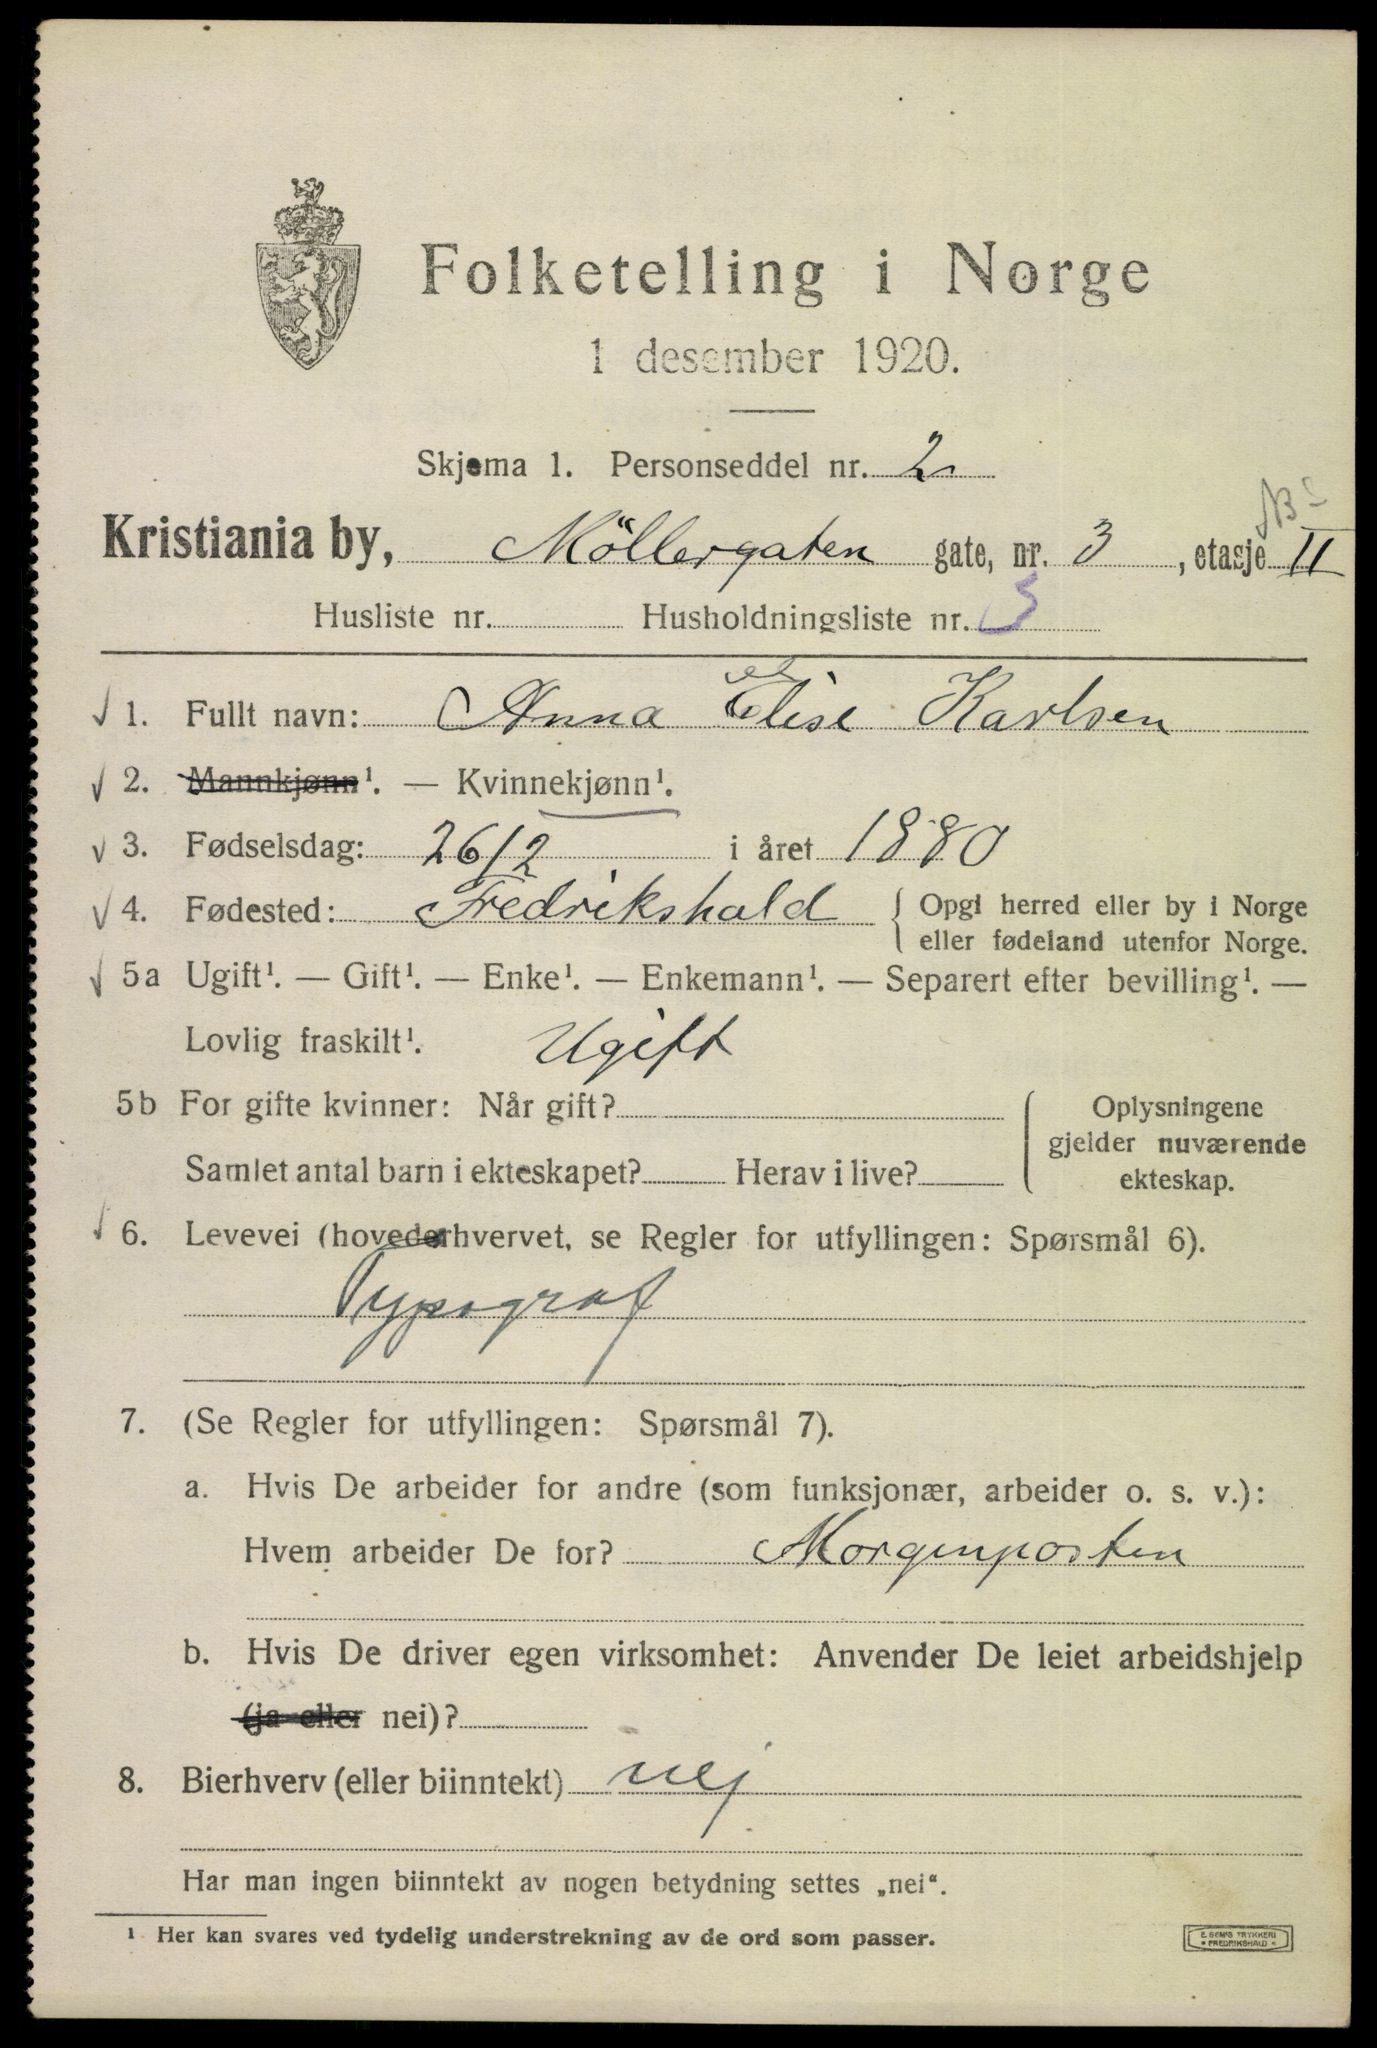 Folketelling i Norge
1 desember 1920.
Skjema 1. Personseddel nr. 2
Kristiania by, Møllergaten gate, nr. 3, etasje II
Husliste nr. Husholdningsliste nr. 3
1. Fullt navn: Anna Elise Karlsen
2. Mannkjønn¹. — Kvinnekjønn¹.
3. Fødselsdag: 26/2 i året 1880
4. Fødested: Fredrikshald { Opgi herred eller by i Norge
eller fødeland utenfor Norge.
5a Ugift¹. — Gift¹. — Enke¹. — Enkemann¹. — Separert efter bevilling¹. —
Lovlig fraskilt¹. Ugift
5b For gifte kvinner: Når gift? { Oplysningene
gjelder nuværende
Samlet antal barn i ekteskapet? Herav i live? ekteskap.
6. Levevei (hovederhvervet, se Regler for utfyllingen: Spørsmål 6).
Typograf
7. (Se Regler for utfyllingen: Spørsmål 7).
a. Hvis De arbeider for andre (som funksjonær, arbeider o. s. v.):
Hvem arbeider De for? Morgenposten
b. Hvis De driver egen virksomhet: Anvender De leiet arbeidshjelp
(ja eller nei)?
8. Bierhverv (eller biinntekt) nej
Har man ingen biinntekt av nogen betydning settes „nei“.
¹ Her kan svares ved tydelig understrekning av de ord som passer.
E. SEM'S TRYKKERI
FREDRIKSHALD